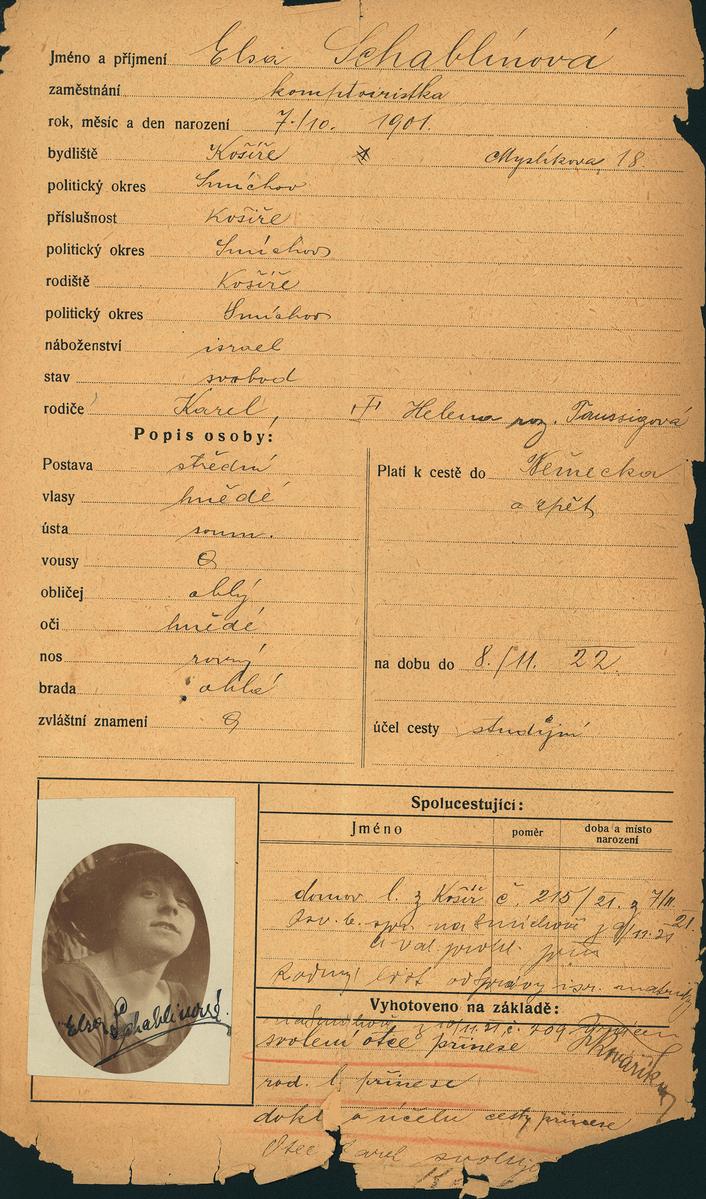 Jméno a příjmení Elsa Schablinová
zaměstnání komptoiristka
rok, měsíc a den narození 7./10. 1901.
bydliště Košíře Myslíkova 18
politický okres Smíchov
příslušnost Košíře
politický okres Smíchov
rodiště Košíře
politický okres Smíchov
náboženství israel
stav svobod
rodiče Karel, Helena roz. Taussigová
Popis osoby:
Postava střední
vlasy hnědé
ústa soum.
vousy 0
obličej oblý
oči hnědé
nos rovný
brada oblá
zvláštní znamení 0
Platí k cestě do Německa
a zpět
na dobu do 8./11. 22
účel cesty studijní
Elsa Schablinová.
Spolucestující:
Jméno poměr doba a místo narození
domov. l. z Košíř č. 215/21. z 7/11.
Osv. b. spr. na Smíchově z 9/11.21
a val.
Rodný list isr. matriky
Vyhotoveno na základě:
z 10/11.21 č. 709
svolení otce přinese Kovařík
rod. l. přinese
dokl. o účelu cesty přinese
Otec Karel